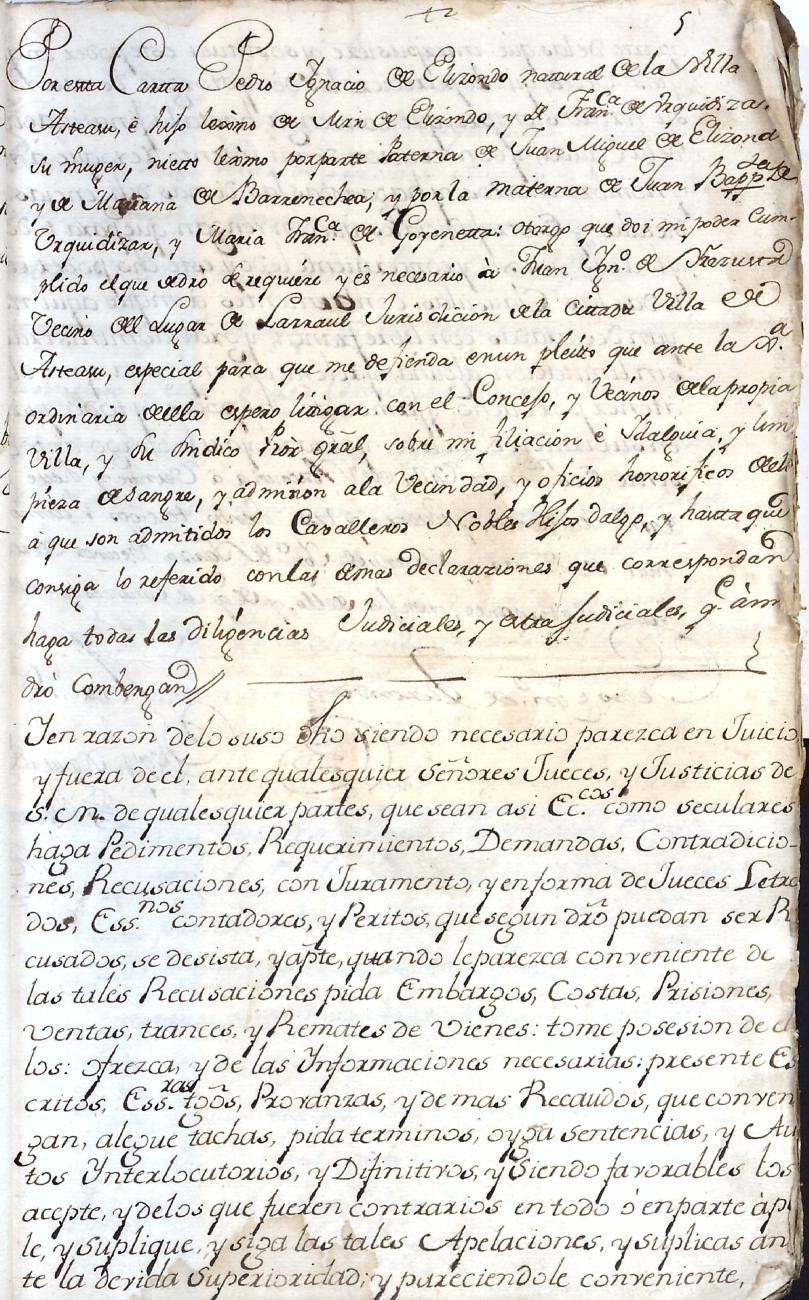 5
Por esta Carta Pedro Ignacio de Elizondo natural de la Villa
Arteasu, è hijo lexmo de Mrn de Elizondo, y de Fran.ca de Vrquidizar
su muger, nieto lexmo por parte Paterna de Juan Miguel de Elizond
y de Mariana de Barrenechea, y por la materna de Juan Bapp.ta de
Vrquidizar, y Maria Fran.ca de Goyenetta: otorgo que doi mi poder Cum-
plido el que de dró se requiére y es necesario à Juan Ign.o de
Vecino del Lugar de Larraul Jurisdicion de la citada Villa de
Arteasu, especial para que me defienda en un pleito que ante la
ordinaria de ella espero litigar con el Concejo, y Vecinos de la propia
Villa, y su Sindico Pror gral, sobre mi filiacion è Idalguia, y lim
pieza de sangre, y admision a la Vecindad, y oficios honorificos de ella
a que son admitidos los Cavalleros Nobles Hijos dalgo, y hasta que
consiga lo referido con las demas declaraziones que correspondan
haga todas las diligencias Judiciales, y extra Judiciales, q.e àm
dró Combengan//
Y en razon de lo suso dho siendo necesario parezca en Juicio
y fuera de el, ante qualesquier Señores Jueces, y Justicias de
S. M. de qualesquier partes, que sean asi Ec.cos como seculares
haga Pedimentos, Requerimientos, Demandas, Contradicio-
nes, Recusaciones, con Juramento, y en forma de Jueces Letra
dos, Ess.nos contadores, y Peritos, que segun dró puedan ser R
cusados, se desista, y apte, quando le parezca conveniente de
las tales Recusaciones pida Embargos, Costas, Prisiones,
ventas, trances, y Remates de vienes: tome posesion de e
los: ofrezca, y de las Ynformaciones necesarias: presente Es
critos, Ess.ras tgõs, Provanzas, y demas Recaudos, que conven
gan, alegue tachas, pida terminos, oyga sentencias, y Au
tos Ynterlocutorios, y Difinitivos, y siendo favorables los
acepte, y de los que fueren contrarios en todo ò en parte àpe
le, y suplique, y siga las tales Apelaciones, y suplicas an
te la devida Superioridad; y pareciendole conveniente,